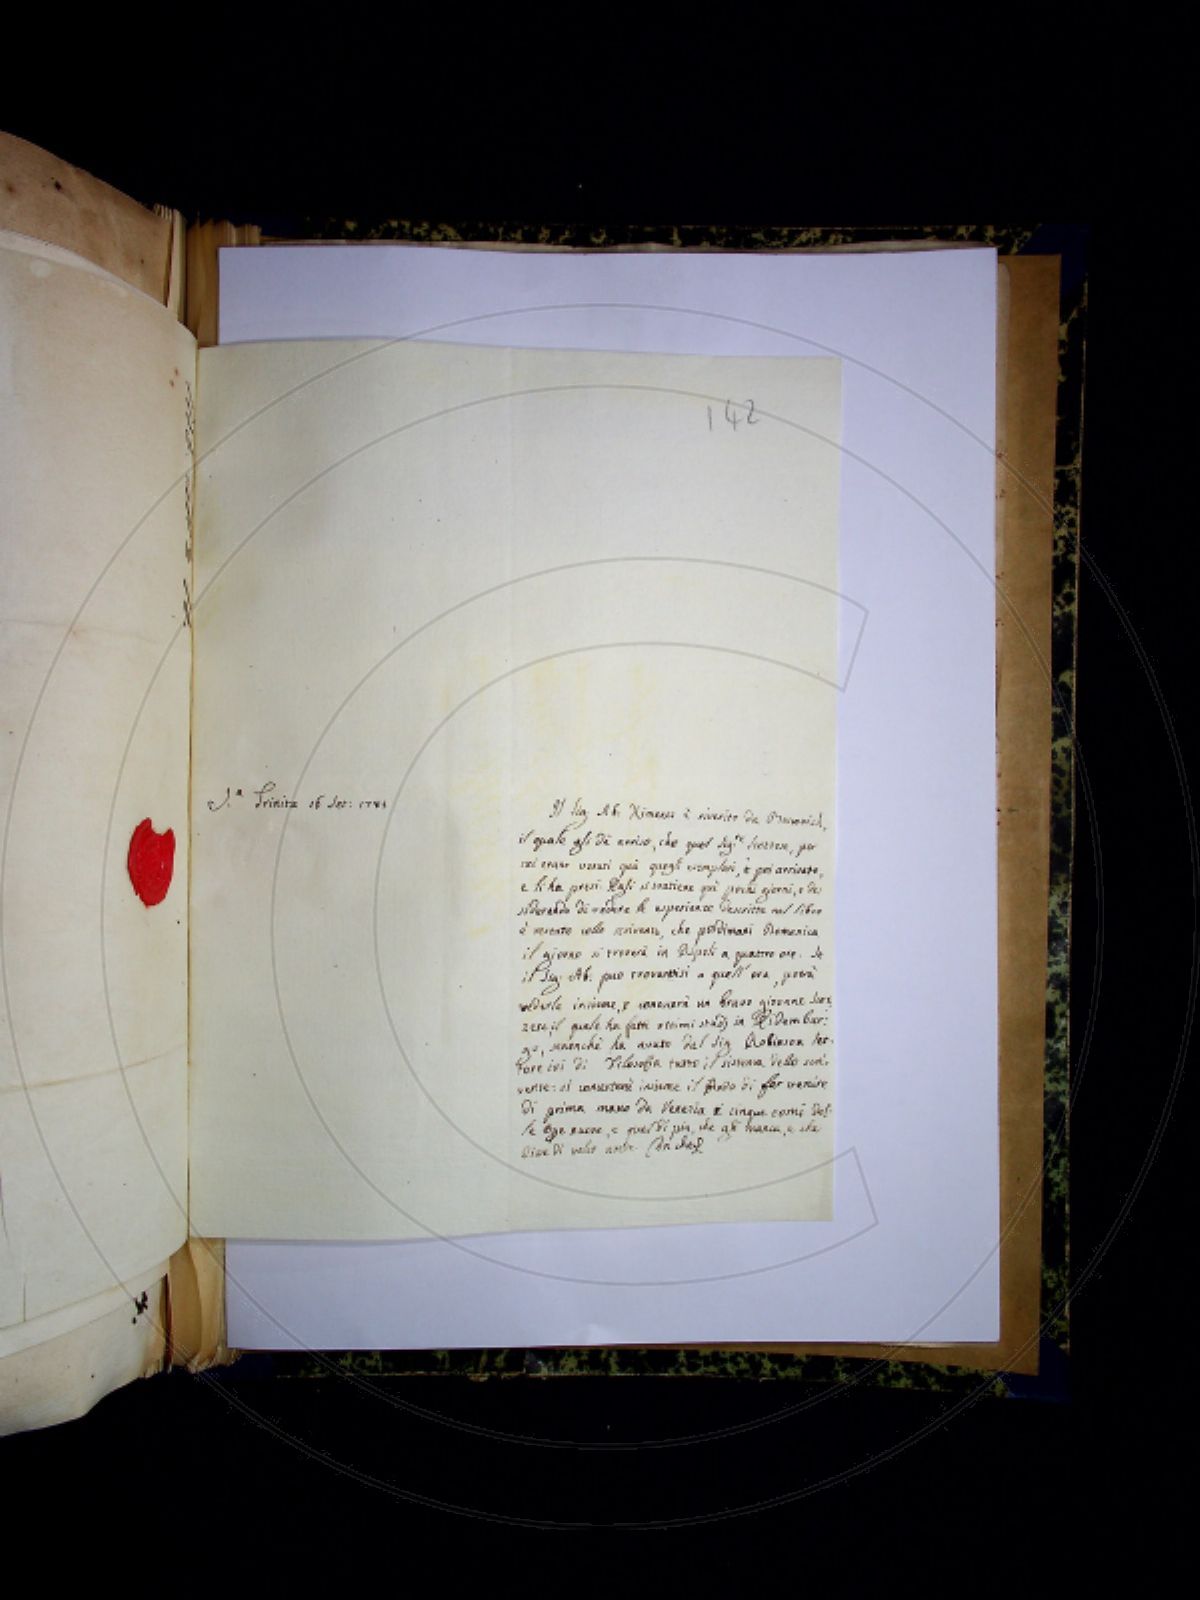 142
S.ª Trinita 16 Set: 1785
Il Sig. Ab. Ximenes è riverito da Boscovich,
il quale gli dà avviso, che quel Sig.re Scozzese, per
cui erano venuti quà quegli esemplari, è poi arrivato,
e li ha presi. Egli si trattiene quì pochi giorni, e de:
siderando di vedere le esperienze descritte nel libro
è restato collo scrivente, che posdimani Domenica
il giorno si troverà in Ripoli a quattro ore. Se
il Sig. Ab. può trovarvisi a quell'ora, potrà
vederle insieme, e conoscerà un bravo giovane Scoz:
zese, il quale ha fatti ottimi studj in Edambur:
go, sicchè ha avuto dal Sig. Robinson let:
tore ivi di Filosofia tutto il sistema dello scri:
vente: si concerterà insieme il modo di far venire
di prima mano da Venezia i cinque tomi del:
le Ope nuove, e quel di più, che gli manca, e che
dice di voler